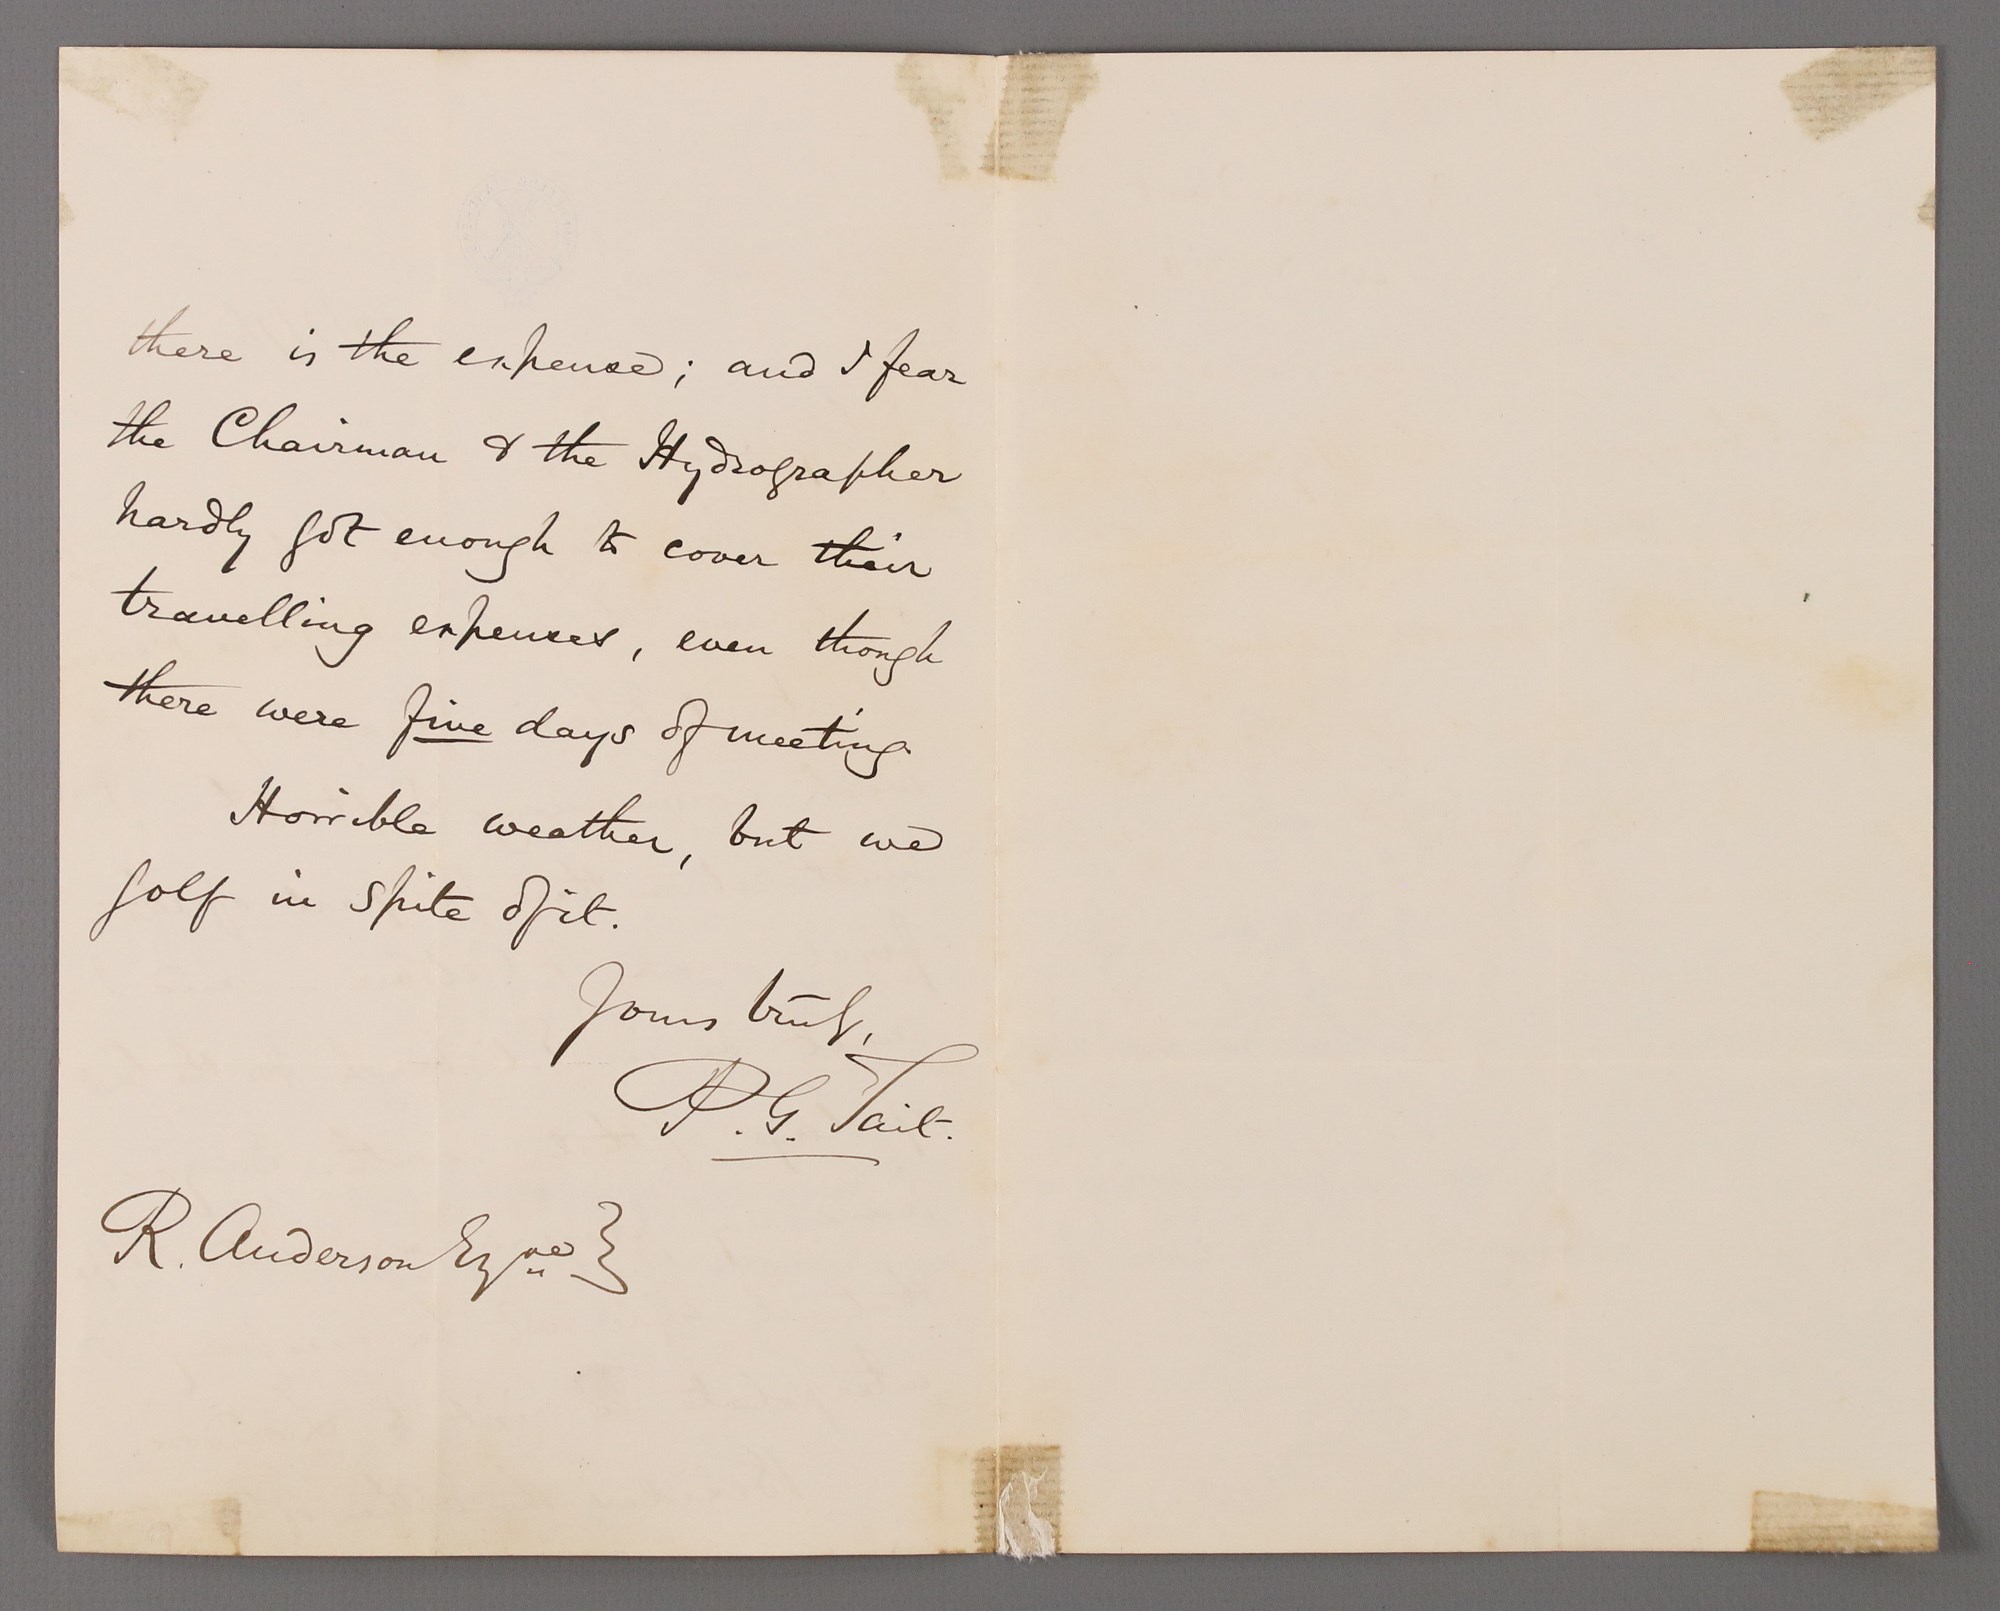 there is the expense; and I fear
the Chairman & the Hydrographer
hardly got enough to cover their
travelling expenses, even though
there were five days of meeting.
Horrible weather, but we
golf in spite of it.
Yours truly,
P. G. Tait.
R. Anderson Esqre }